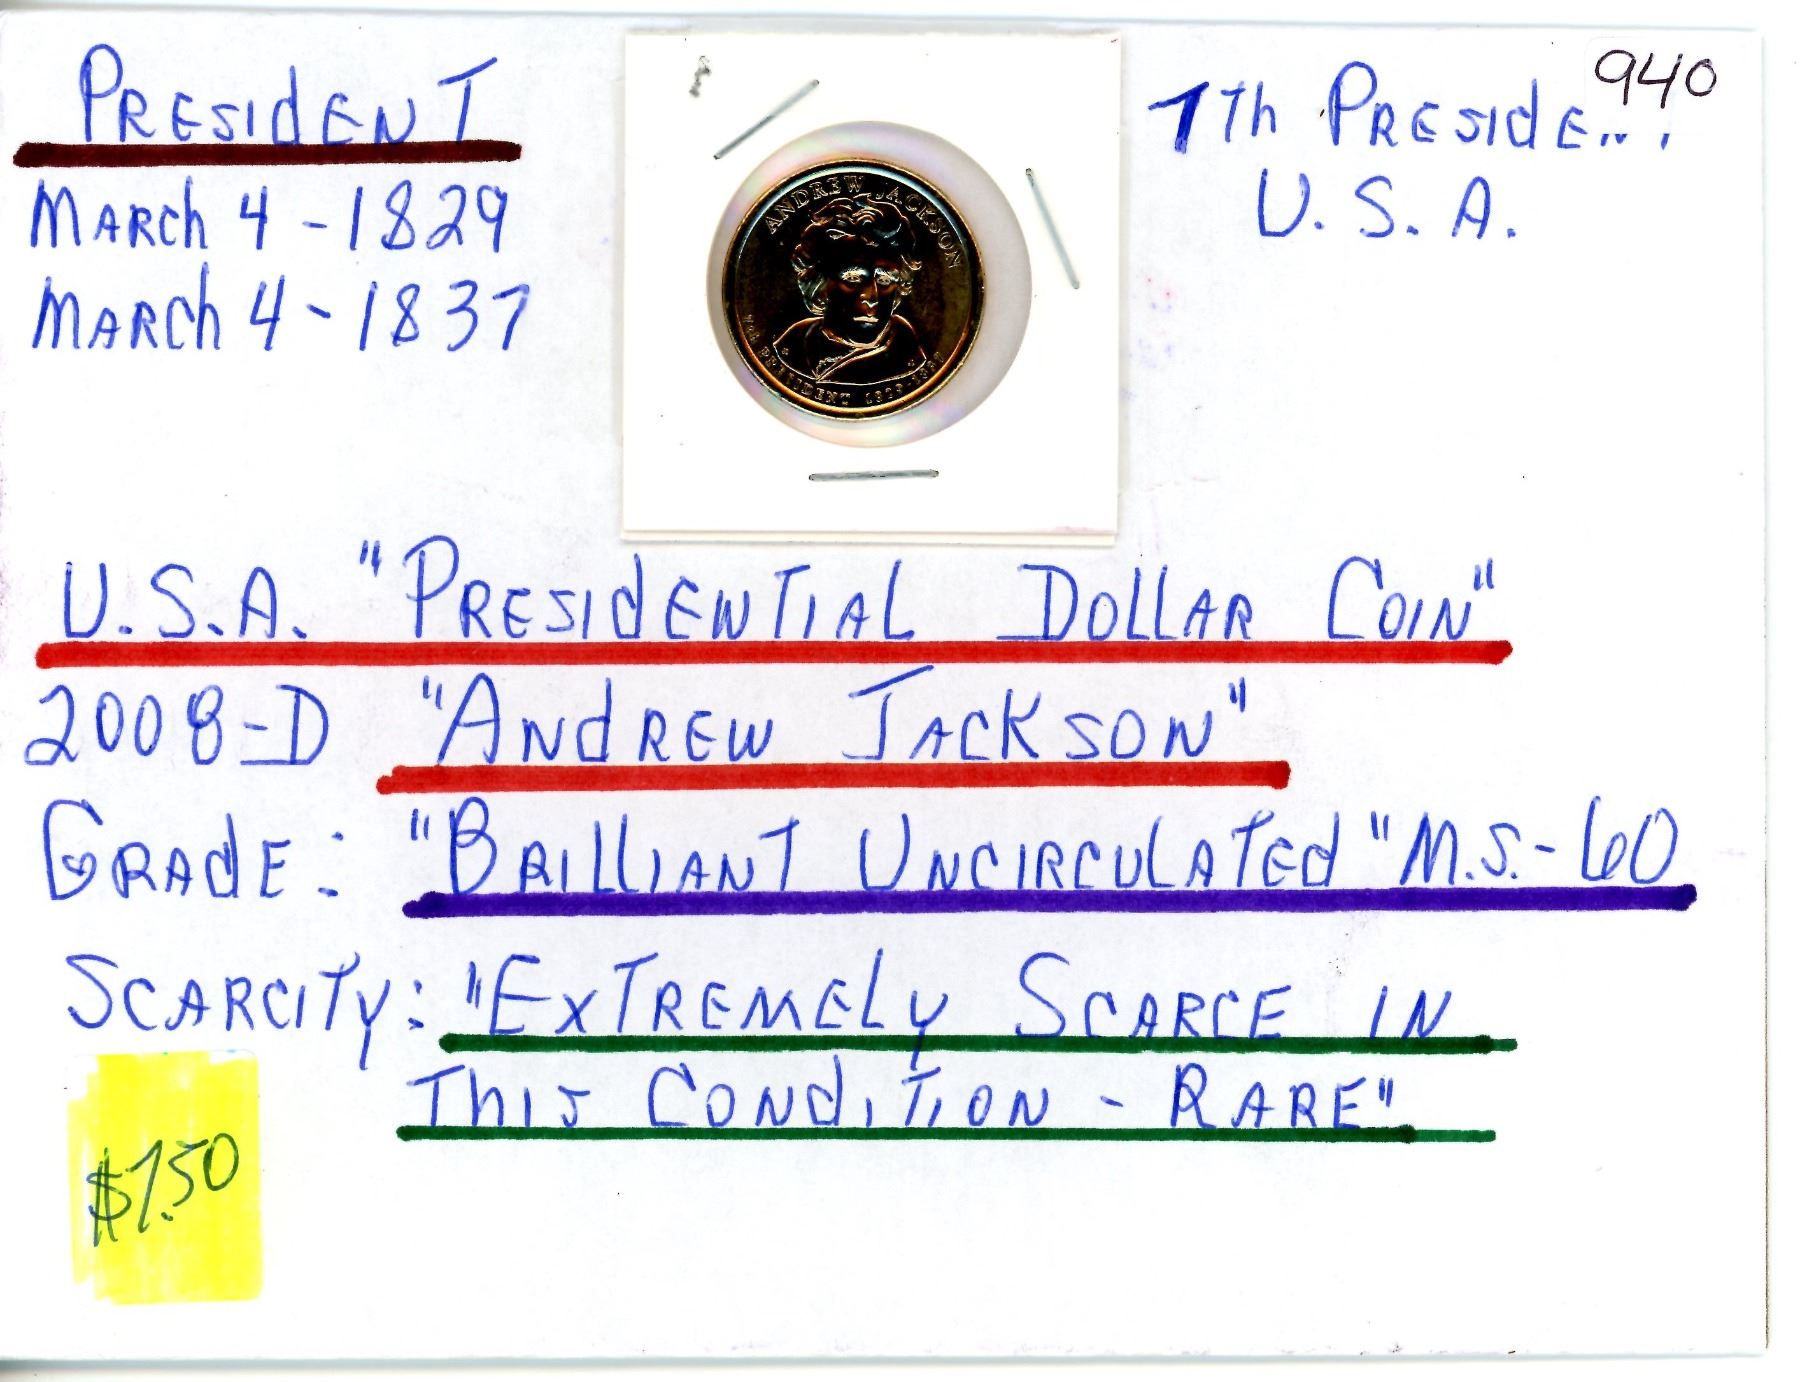 PRESIDENT
MARCH 4 - 1829
MARCH 4 - 1837
ANDREW JACKSON
7th PRESIDENT 1829-1837
7Th PRESIDENT
U.S.A.
940
U.S.A. "PRESIDENTIAL DOLLAR COIN"
2008-D "ANDREW JACKSON"
GRADE: "BRILLIANT UNCIRCULATED" M.S.-60
SCARCITY: "EXTREMELY SCARCE IN
THIS CONDITION - RARE"
$7.50